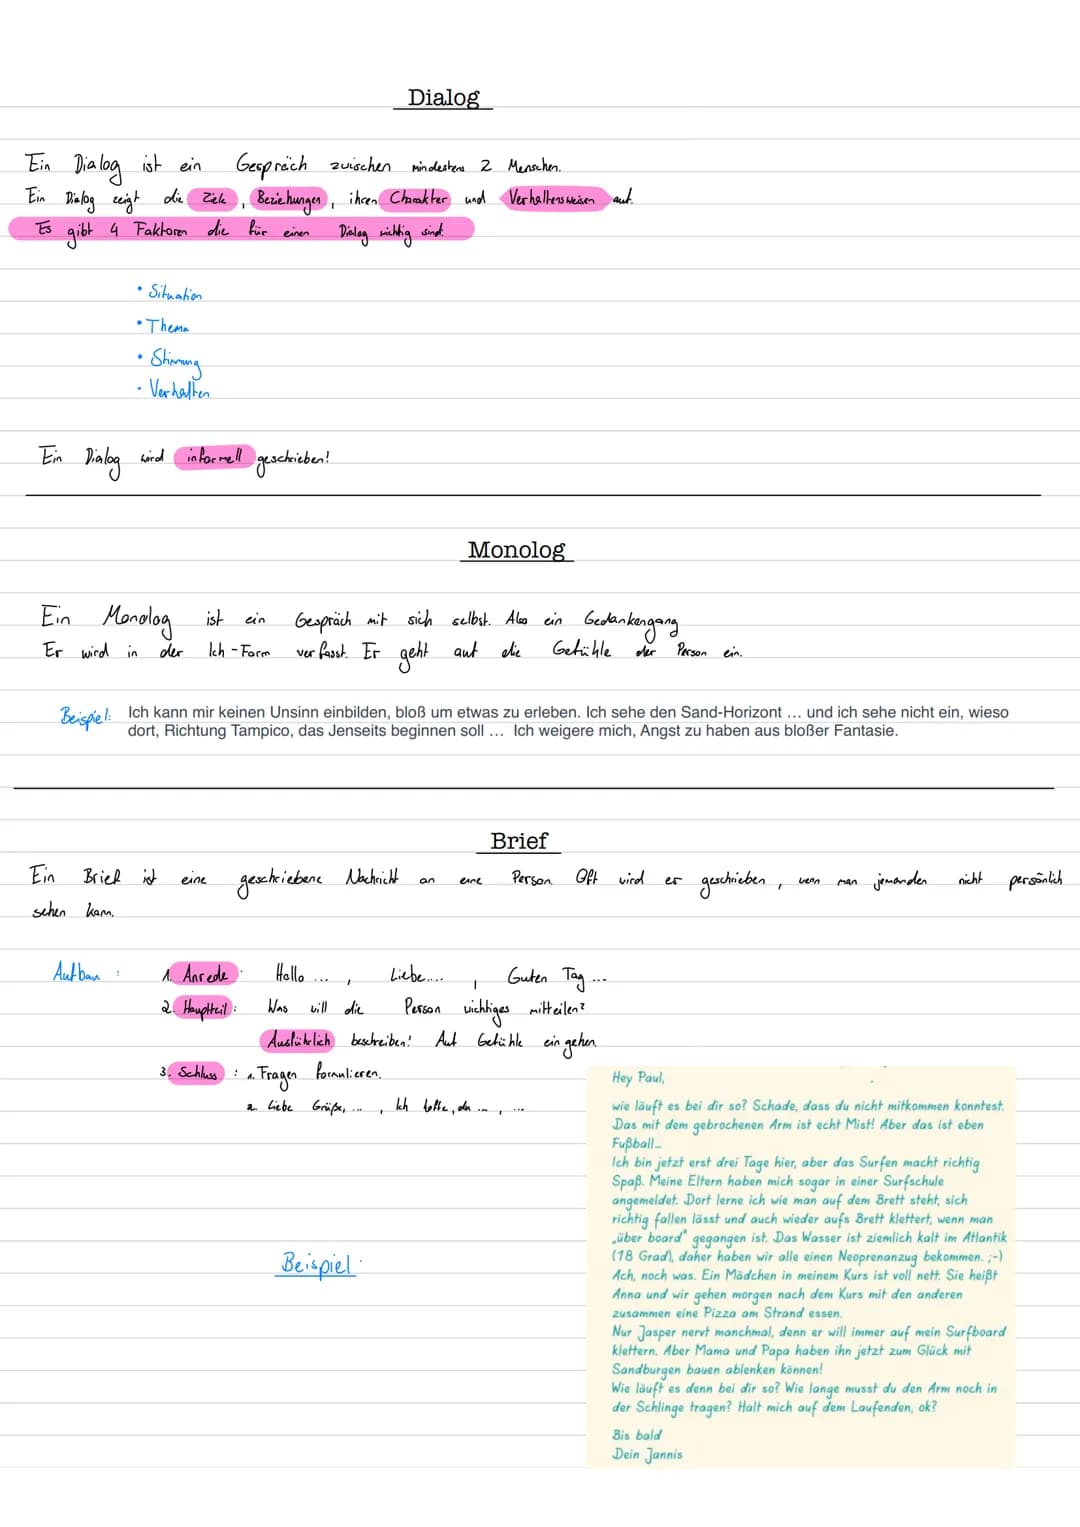 Dialog
Ein Dialog ist ein Gespräch zwischen mindestens 2 Menschen.
Ein Dialog zeigt die Ziele, Beziehungen, ihren Charakter und Verhaltensweisen auf.
Es gibt 4 Faktoren die für einen Dialog wichtig sind.
• Situation
• Thema
• Stimmung
• Verhalten
Ein Dialog wird informell geschrieben!
Monolog
Ein Monolog ist ein Gespräch mit sich selbst. Also ein Gedankengang
Er wird in der Ich-Form verfasst. Er geht auf die Gefühle der Person ein.
Beispiel: Ich kann mir keinen Unsinn einbilden, bloß um etwas zu erleben. Ich sehe den Sand-Horizont ... und ich sehe nicht ein, wieso
dort, Richtung Tampico, das Jenseits beginnen soll ... Ich weigere mich, Angst zu haben aus bloßer Fantasie.
Brief
Ein Brief ist eine geschriebene Nachricht an eine Person. Oft wird er geschrieben, wenn man jemanden nicht persönlich
sehen kann.
Aufbau : 1. Anrede: Hallo ..., Liebe...., Guten Tag ...
2. Hauptteil: Was will die Person wichtiges mitteilen?
Ausführlich beschreiben! Auf Gefühle eingehen.
3. Schluss : 1. Fragen formulieren.
2. Liebe Grüße, ..., Ich hoffe, du ..., ...
Beispiel:
Hey Paul,
wie läuft es bei dir so? Schade, dass du nicht mitkommen konntest.
Das mit dem gebrochenen Arm ist echt Mist! Aber das ist eben
Fußball...
Ich bin jetzt erst drei Tage hier, aber das Surfen macht richtig
Spaß. Meine Eltern haben mich sogar in einer Surfschule
angemeldet. Dort lerne ich wie man auf dem Brett steht, sich
richtig fallen lässt und auch wieder aufs Brett klettert, wenn man
„über board" gegangen ist. Das Wasser ist ziemlich kalt im Atlantik
(18 Grad), daher haben wir alle einen Neoprenanzug bekommen. ;-)
Ach, noch was. Ein Mädchen in meinem Kurs ist voll nett. Sie heißt
Anna und wir gehen morgen nach dem Kurs mit den anderen
zusammen eine Pizza am Strand essen.
Nur Jasper nervt manchmal, denn er will immer auf mein Surfboard
klettern. Aber Mama und Papa haben ihn jetzt zum Glück mit
Sandburgen bauen ablenken können!
Wie läuft es denn bei dir so? Wie lange musst du den Arm noch in
der Schlinge tragen? Halt mich auf dem Laufenden, ok?
Bis bald
Dein Jannis